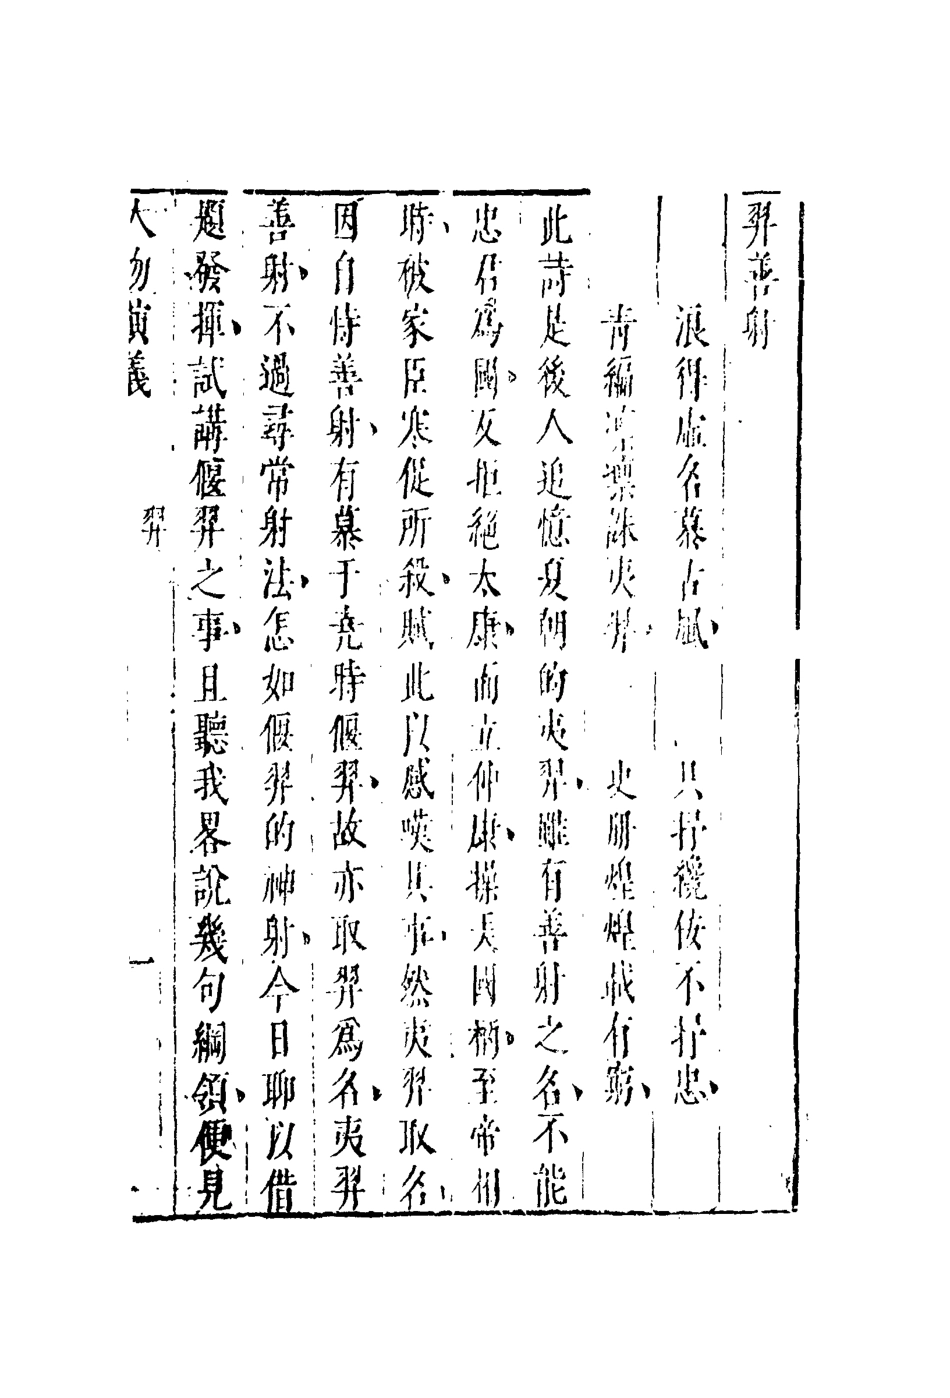 羿善射
浪得虛名慕古風、 只抒讒佞不抒忠、
青編凜凜誅夷羿、 史冊煌煌載有窮、
此詩是後人追憶夏朝的夷羿、雖有善射之名、不能
忠君爲國。反拒絕太康、而立仲康、操夫國柄。至帝相
時、被家臣寒促所殺、賦此以感嘆其事、然夷羿取名、
因自恃善射、有慕于堯時偃羿、故亦取羿爲名、夷羿
善射、不過尋常射法、怎如偃羿的神射、今日聊以借
題發揮、試講偃羿之事、且聽我畧說幾句綱領、便見
人物演義 羿 一